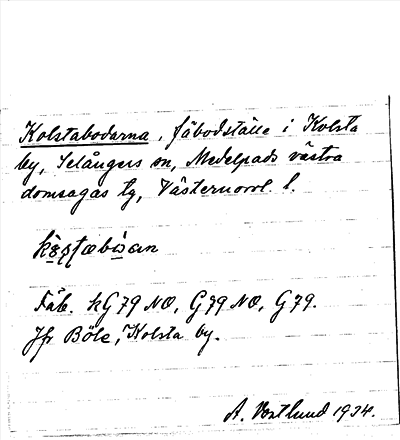 Kolstabodarna, fäbodställe i Kolsta
by, Selångers sn, Medelpads västra
domsagas tg, Västernorrl. l.
Fäb. kG79 NO, G79 NO, G79.
Jfr Böle, Kolsta by.
A. Westlund 1934.